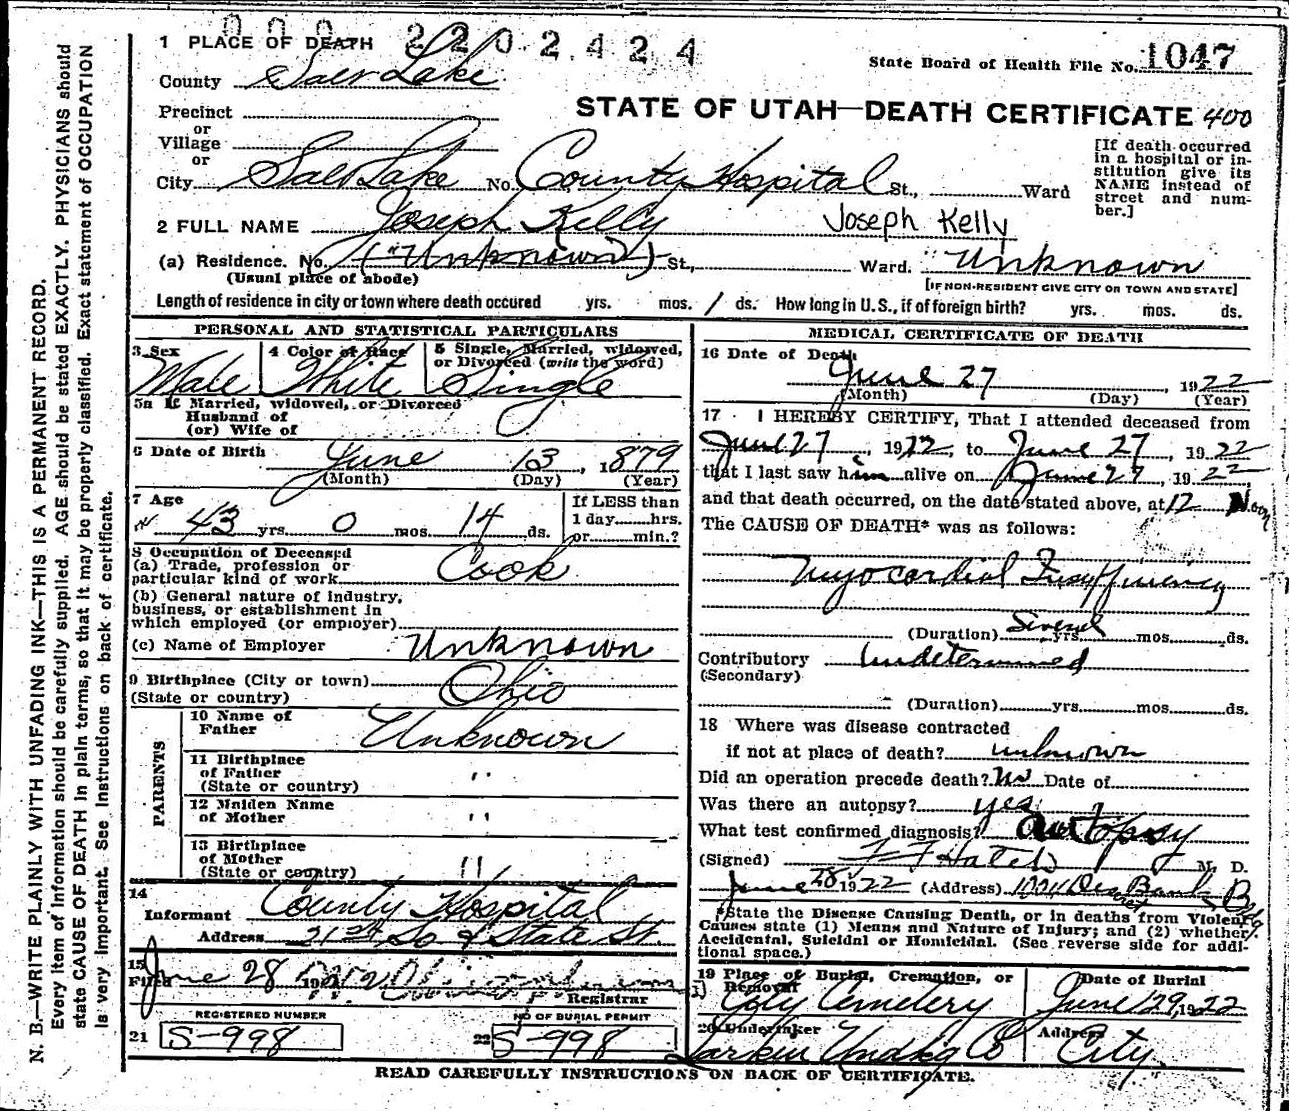 000 2202424
1 PLACE OF DEATH
State Board of Health File No. 1047
County Salt Lake
STATE OF UTAH—DEATH CERTIFICATE 400
Precinct
or
Village
or
City Salt Lake No. County Hospital St., Ward
[If death occurred in a hospital or institution give its NAME instead of street and number.]
2 FULL NAME Joseph Kelly Joseph Kelly
(a) Residence. No. ("Unknown") St., Ward. Unknown
(Usual place of abode) [IF NON-RESIDENT GIVE CITY OR TOWN AND STATE]
Length of residence in city or town where death occured yrs. mos. 1 ds. How long in U.S., if of foreign birth? yrs. mos. ds.
PERSONAL AND STATISTICAL PARTICULARS
3 Sex 4 Color or Race 5 Single, Married, widowed,
or Divorced (write the word)
Male White Single
5a If Married, widowed, or Divorced
Husband of
(or) Wife of
6 Date of Birth
June 13, 1879
(Month) (Day) (Year)
7 Age If LESS than
43 yrs. 0 mos. 14 ds. 1 day hrs.
or min.?
8 Occupation of Deceased
(a) Trade, profession or
particular kind of work Cook
(b) General nature of industry,
business, or establishment in
which employed (or employer)
(c) Name of Employer Unknown
9 Birthplace (City or town)
(State or country) Ohio
PARENTS
10 Name of
Father Unknown
11 Birthplace
of Father "
(State or country)
12 Maiden Name
of Mother "
13 Birthplace
of Mother "
(State or country)
14
Informant County Hospital
Address 21st So & State St.
15
Filed June 28 192
Registrar
REGISTERED NUMBER NO OF BURIAL PERMIT
21 S-998 22 S-998
MEDICAL CERTIFICATE OF DEATH
16 Date of Death
June 27, 1922
(Month) (Day) (Year)
17 I HEREBY CERTIFY, That I attended deceased from
June 27, 1922, to June 27, 1922
that I last saw him alive on June 27, 1922
and that death occurred, on the date stated above, at 12 Noon
The CAUSE OF DEATH* was as follows:
Myocardial Insufficiency
(Duration) Several yrs. mos. ds.
Contributory Undetermined
(Secondary)
(Duration) yrs. mos. ds.
18 Where was disease contracted
if not at place of death? unknown
Did an operation precede death? No Date of
Was there an autopsy? yes
What test confirmed diagnosis? autopsy
(Signed) F F Hatch M. D.
June 28 1922 (Address) Deseret Bank
*State the Disease Causing Death, or in deaths from Violent
Causes state (1) Means and Nature of Injury; and (2) whether
Accidental, Suicidal or Homicidal. (See reverse side for addi-
tional space.)
19 Place of Burial, Cremation, or Date of Burial
Removal
City Cemetery June 29, 1922
20 Undertaker Address
Larkin Undkg Co City
READ CAREFULLY INSTRUCTIONS ON BACK OF CERTIFICATE.
N. B.—WRITE PLAINLY WITH UNFADING INK—THIS IS A PERMANENT RECORD.
Every item of Information should be carefully supplied. AGE should be stated EXACTLY. PHYSICIANS should
state CAUSE OF DEATH in plain terms, so that it may be properly classified. Exact statement of OCCUPATION
is very important. See Instructions on back of certificate.